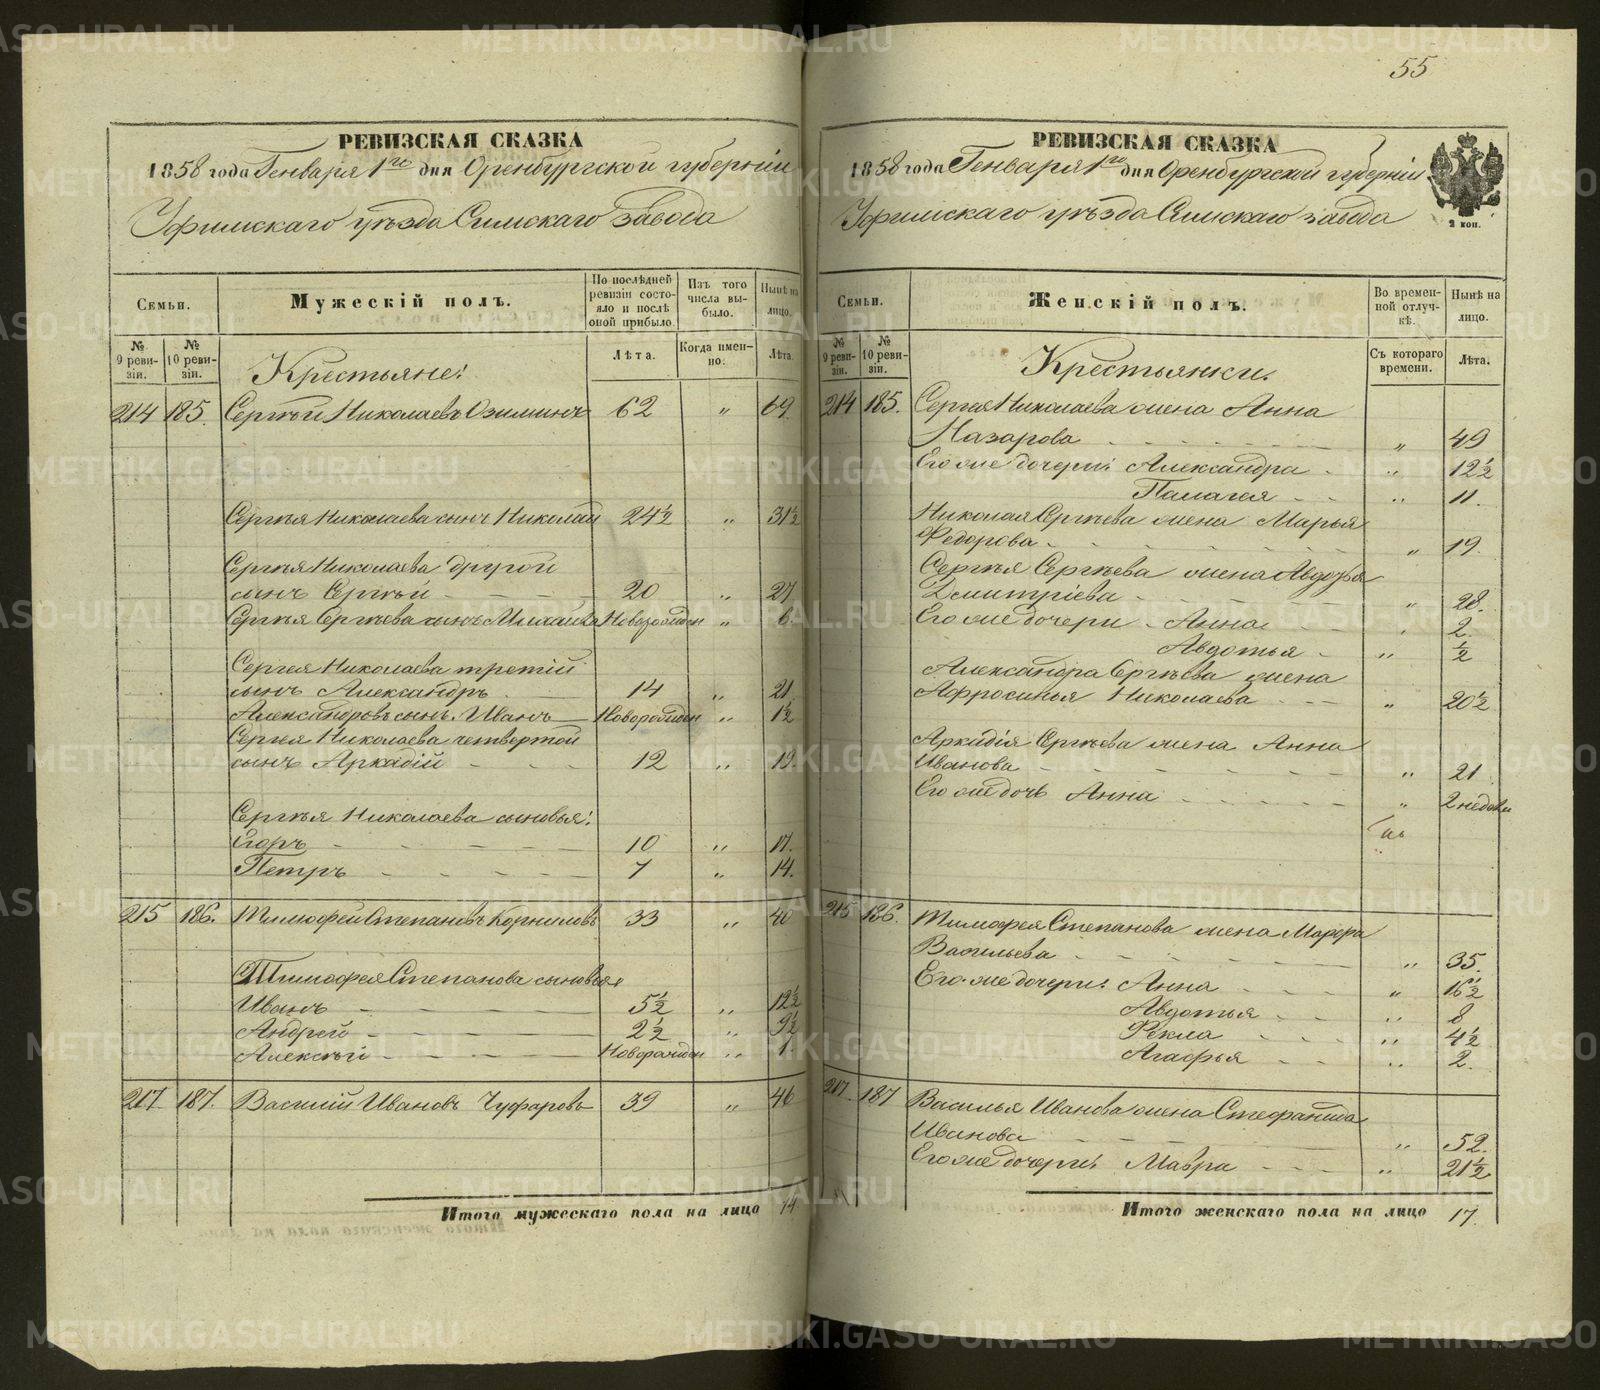 55
РЕВИЗСКАЯ СКАЗКА
1858 года Генваря 1го дня Оренбургской губернiи
Уфимскаго уѣзда Симскаго завода
Семьи.
Мужескiй полъ.
По послѣдней ревизiи состояло и послѣ оной прибыло.
Изъ того числа выбыло.
Нынѣ на лицо.
№ 9 ревизiи.
№ 10 ревизiи.
Крестьяне:
Лѣта.
Когда именно.
Лѣта.
214 185. Сергѣй Николаевъ Озиминъ 62 „ 69.
Сергѣя Николаева сынъ Николай 24½ „ 31½
Сергѣя Николаева другой
сынъ Сергѣй 20 „ 27
Сергѣя Сергѣева сынъ Михаила Новорожден „ 6
Сергея Николаева третiй
сынъ Александръ 14 „ 21
Александровъ сынъ Иванъ Новорожден „ 1½
Сергея Николаева четвертой
сынъ Аркадiй 12 „ 19
Сергѣя Николаева сыновья:
Егоръ 10 „ 17.
Петръ 7 „ 14.
215 186. Тимофей Степановъ Корниловъ 33 „ 40
Тимофея Степанова сыновья
Иванъ 5½ „ 12½
Андрей 2½ „ 9½
Алексѣй Новорожден „ 1.
217. 187. Василiй Ивановъ Чуфаровъ 39 „ 46
Итого мужескаго пола на лицо 14
РЕВИЗСКАЯ СКАЗКА
1858 года Генваря 1го дня Оренбургской губернiи
Уфимскаго уѣзда Симскаго завода
2 коп.
Семьи.
Женскiй полъ.
Во временной отлучкѣ.
Нынѣ на лицо.
№ 9 ревизiи.
№ 10 ревизiи.
Крестьянки.
Съ котораго времени.
Лѣта.
214 185. Сергея Николаева жена Анна
Назарова „ 49
Его же дочери: Александра „ 12½
Палагея „ 11.
Николая Сергѣева жена Марья
Федорова „ 19.
Сергѣя Сергѣева жена Авдотья
Дмитрiева „ 28.
Его же дочери Анна „ 2.
Авдотья „ ½
Александра Сергѣева жена
Афросинья Николаева „ 20½
Аркадiя Сергѣева жена Анна
Иванова „ 21
Его же дочь Анна „ 2 недели
215 186. Тимофея Степанова жена Марфа
Васильева „ 35.
Его же дочери: Анна „ 16½
Авдотья „ 8
Фекла „ 4½
Агафья „ 2.
217. 187 Василья Иванова жена Стефанида
Иванова „ 52.
Его же дочери: Мавра „ 21½
Итого женскаго пола на лицо 17.
METRIKI.GASO-URAL.RU